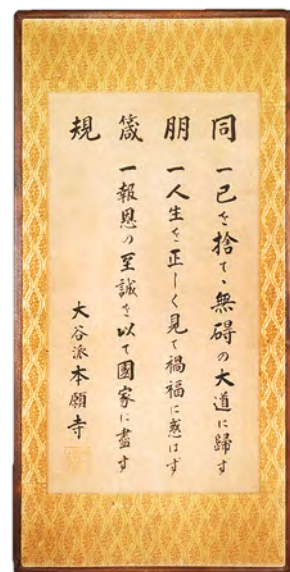 同朋箴規
一己を捨て、無碍の大道に歸す
一人生を正しく見て禍福に惑はず
一報恩の至誠を以て國家に盡す
大谷派本願寺